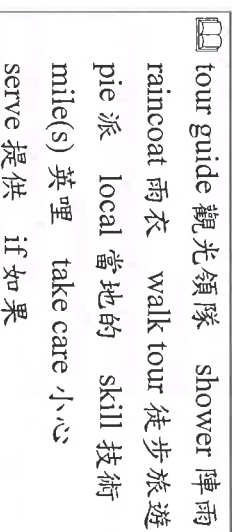 tour guide 觀光領隊 shower 陣雨
raincoat 雨衣 walk tour 徒步旅遊
pie 派 local 當地的 skill 技術
mile(s) 英哩 take care 小心
serve 提供 if 如果